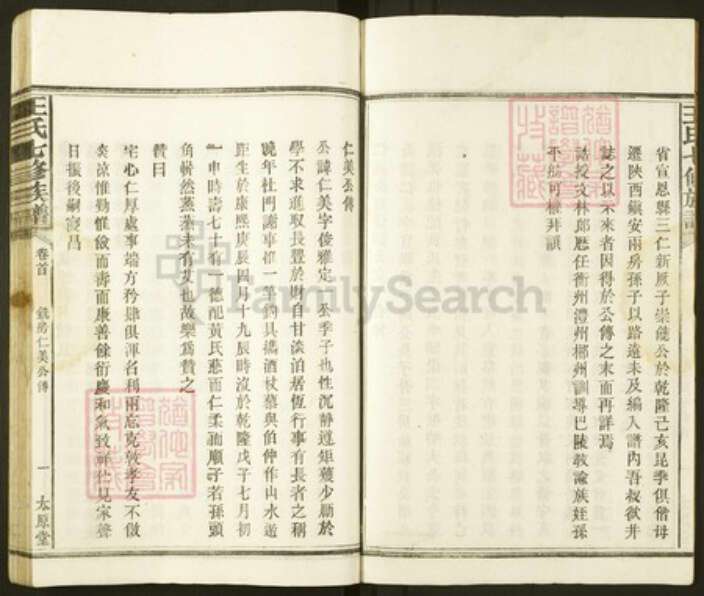 王氏七修族譜
省宣恩縣三仁新廒子崇儀公於乾隆己亥昆季俱偕母
遷陝西鎮安兩房孫子以路遠未及編入譜內吾叔欲幷
誌之以示來者因得於公傳之末而再詳焉
誥授文林郎歷任衡州澧州郴州訓導巴陵教諭族姪孫
平舫可權拜譔
仁美公傳
公諱仁美字俊雅定 公季子也性沉靜遵矩矱少勵於
學不求進取長豐於財自甘淡泊居恆行事有長者之稱
晚年杜門謝事惟一竿釣具攜酒杖藜與伯仲作山水遊
距生於康熙庚辰四月十九辰時沒於乾隆戊子七月初
一申時壽七十有一德配黃氏慈而仁柔而順子若孫頭
角嶄然蒸蒸未有艾也故樂為贊之
贊曰
宅心仁厚處事端方矜肆俱渾名利兩忘克敦孝友不傲
炎涼惟勤惟儉而壽而康善餘衍慶和氣致祥伫見家聲
日振後嗣寖昌
王氏七修族譜
卷首
鏡房仁美公傳
一
太原堂
FamilySearch